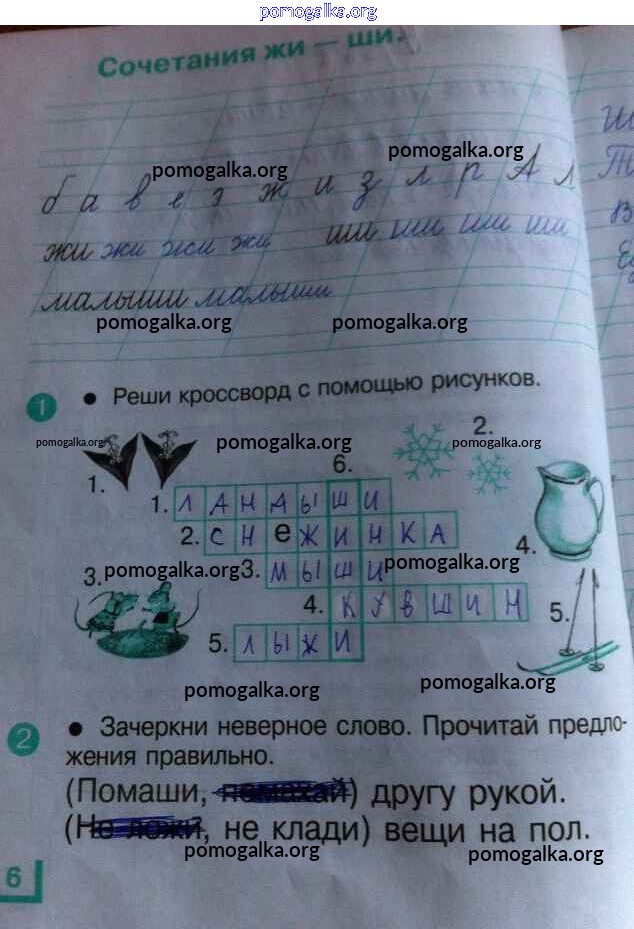 pomogalka.org
Сочетания жи — ши.
pomogalka.org pomogalka.org
б а в е з ж и з л р А л
жи жи жи жи ши ши ши ши
малыши малыши
pomogalka.org pomogalka.org
1 • Реши кроссворд с помощью рисунков.
pomogalka.org pomogalka.org 2. pomogalka.org
6.
1.
1. ЛАНДЫШИ
2. СНеЖИНКА
4.
3. pomogalka.org 3. МЫШИ pomogalka.org
4. КУВШИН 5.
5. ЛЫЖИ
pomogalka.org pomogalka.org
2 • Зачеркни неверное слово. Прочитай предло-
жения правильно.
(Помаши, помахай) другу рукой.
(Не ложи, не клади) вещи на пол.
pomogalka.org pomogalka.org
6